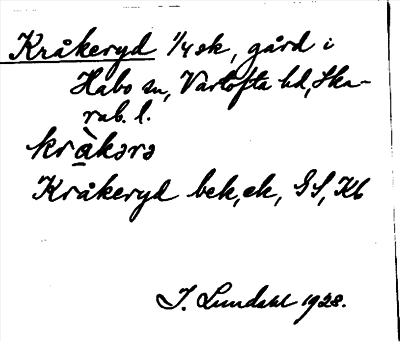 Kråkeryd 1/4 sk, gård i
Habo sn, Vartofta hd, Ska-
rab. l.
krὰkərə
Kråkeryd bek, ek, GS, Kb
J. Lundahl 1928.